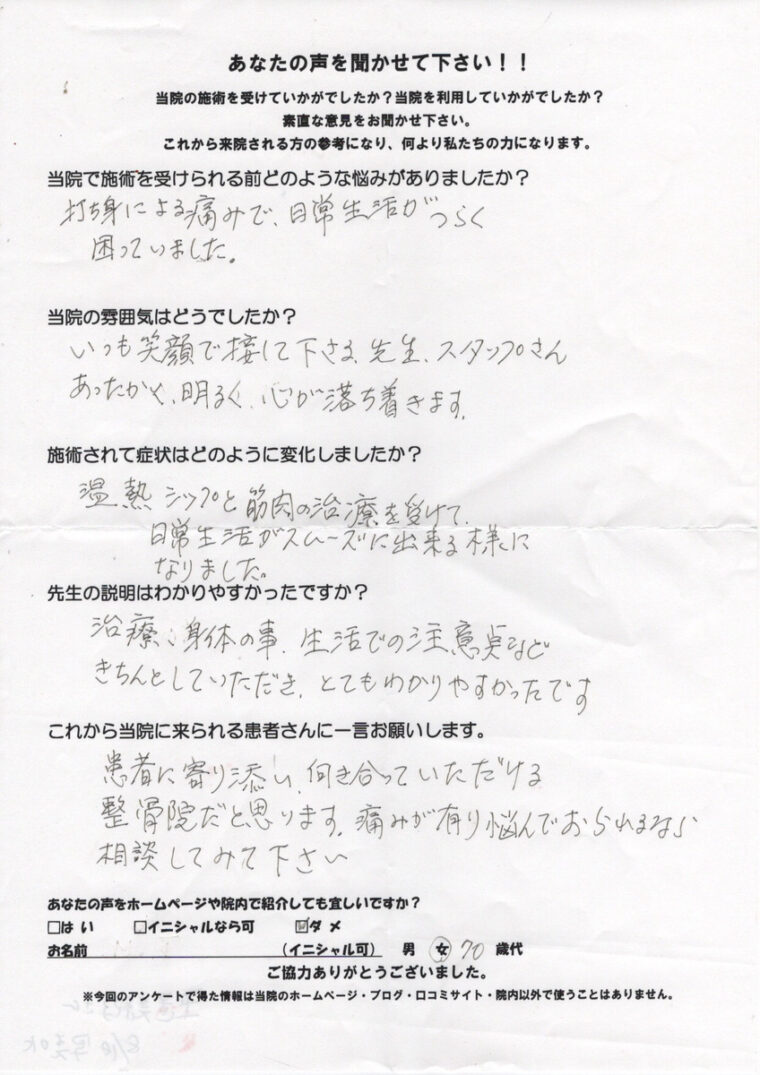 あなたの声を聞かせて下さい！！
当院の施術を受けていかがでしたか？当院を利用していかがでしたか？
素直な意見をお聞かせ下さい。
これから来院される方の参考になり、何より私たちの力になります。
当院で施術を受けられる前どのような悩みがありましたか？
打ち身による痛みで、日常生活がつらく
困っていました。
当院の雰囲気はどうでしたか？
いつも笑顔で接して下さる、先生、スタッフさん
あったかく、明るく、心が落ち着きます。
施術されて症状はどのように変化しましたか？
温熱シップと筋肉の治療を受けて、
日常生活がスムーズに出来る様に
なりました。
先生の説明はわかりやすかったですか？
治療、身体の事、生活での注意点など
きちんとしていただき、とてもわかりやすかったです
これから当院に来られる患者さんに一言お願いします。
患者に寄り添い、向き合っていただける
整骨院だと思います。痛みが有り悩んでおられるなら
相談してみて下さい
あなたの声をホームページや院内で紹介しても宜しいですか？
□はい □イニシャルなら可 ☑ダメ
お名前 （イニシャル可） 男 女 70 歳代
ご協力ありがとうございました。
※今回のアンケートで得た情報は当院のホームページ・ブログ・口コミサイト・院内以外で使うことはありません。